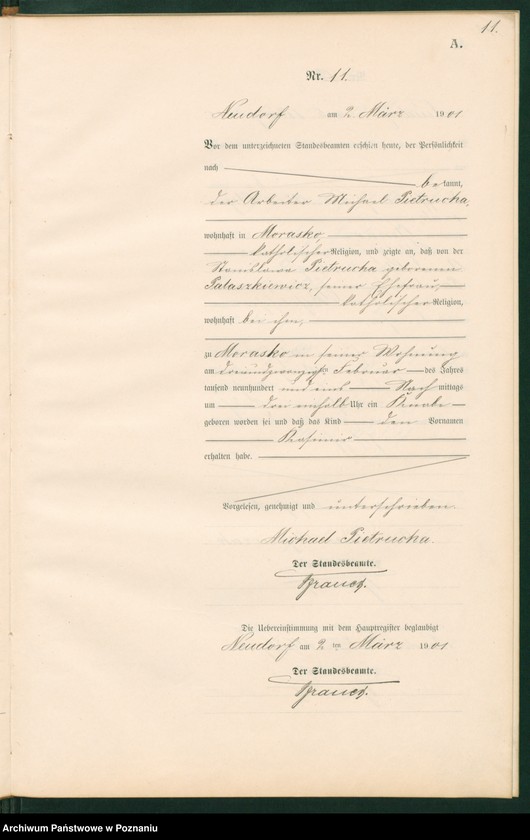 11.
A.
Nr. 11.
Neudorf am 2 März 1901
Vor dem unterzeichneten Standesbeamten erschien heute, der Persönlichkeit
nach
bekannt,
der Arbeiter Michael Pietrucha,
wohnhaft in Morasko,
katholischer Religion, und zeigte an, daß von der
Stanislawa Pietrucha geborenen
Palaszkiewicz, seiner Ehefrau,
katholischer Religion,
wohnhaft bei ihm,
zu Morasko in seiner Wohnung
am dreiundzwanzigsten Februar des Jahres
tausend neunhundert und eins Nach mittags
um drei einhalb Uhr ein Knabe
geboren worden sei und daß das Kind den Vornamen
Kasimir
erhalten habe.
Vorgelesen, genehmigt und unterschrieben
Michael Pietrucha.
Der Standesbeamte.
Die Uebereinstimmung mit dem Hauptregister beglaubigt
Neudorf am 2 ten März 1901
Der Standesbeamte.
Archiwum Państwowe w Poznaniu